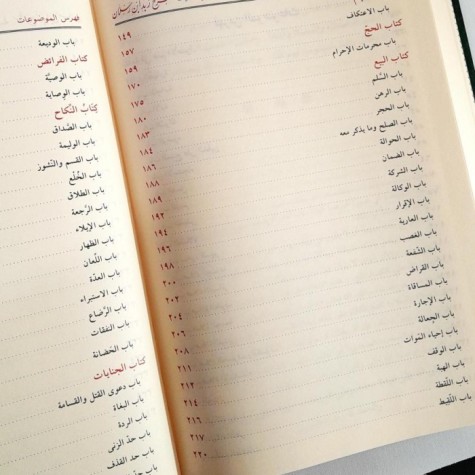 شرح زبد ابن رسلان
١٤٩
باب الاعتكاف ١٥٧
كتاب الحجّ ١٥٩
باب محرمات الإحرام ١٧٠
كتاب البيع ١٧٥
باب السَّلم ١٨٠
باب الرهن ١٨٣
باب الحجر ١٨٤
باب الصلح وما يذكر معه ١٨٦
باب الحوالة ١٨٨
باب الضمان ١٨٩
باب الشركة ١٩٣
باب الوكالة ١٩٤
باب الإقرار ١٩٦
باب العارية ١٩٨
باب الغصب ٢٠٠
باب الشفعة ٢٠٢
باب القراض ٢٠٤
باب المساقاة ٢٠٦
باب الإجارة ٢٠٨
باب الجعالة ٢١١
باب إحياء الموات ٢١٣
باب الوقف ٢١٤
باب الهبة ٢١٦
باب اللقطة ٢١٧
باب اللقيط ٢٢٠
فهرس الموضوعات
باب الوديعة
كتاب الفرائض
باب الوصيّة
باب الوصاية
كتاب النّكاح
باب الصَّداق
باب الوليمة
باب القسم والنّشوز
باب الخُلْع
باب الطلاق
باب الرَّجعة
باب الإيلاء
باب الظهار
باب اللّعان
باب العدّة
باب الاستبراء
باب الرَّضاع
باب النفقات
باب الحضانة
كتاب الجنايات
باب دعوى القتل والقسامة
باب البغاة
باب الردة
باب حدّ الزنى
باب حد القذف